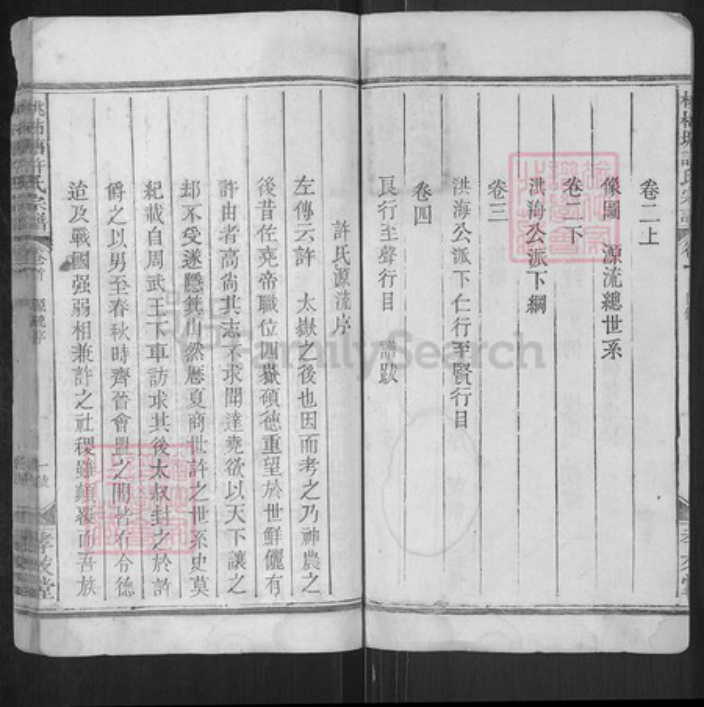 卷二上
像圖 源流總世系
卷二下
洪海公派下綱
卷三
洪海公派下仁行至賢行目
卷四
艮行至聲行目 譜跋
許氏源流序
左傳云許 太嶽之後也因而考之乃神農之
後昔佐堯帝職位四嶽碩德重望於世鮮儷有
許由者高尚其志不求聞達堯欲以天下讓之
却不受遂隱箕山然歷夏商世許之世系史莫
紀載自周武王下車訪求其後太叔封之於許
爵之以男至春秋時齊晉會盟之間皆有合德
迨及戰國强弱相兼許之社稷雖顛覆而吾族
許氏宗譜 卷首 源流序 一 孝友堂
FamilySearch